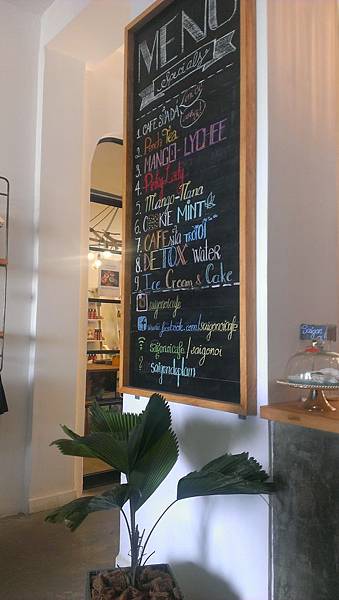 MENU
Specials
1. CAFE SỮA ĐÁ
2. Peach Tea
3. MANGO-LYCHEE
4. Pinky Lady
5. Mango-Nana
6. COOKIE MINT
7. CAFE sữa
8. DE TOX Water
9. Ice Cream & Cake
saigonoicafe
www.facebook.com/saigonoicafe
saigonoicafe/saigonoi
saigondeplam
Saigon